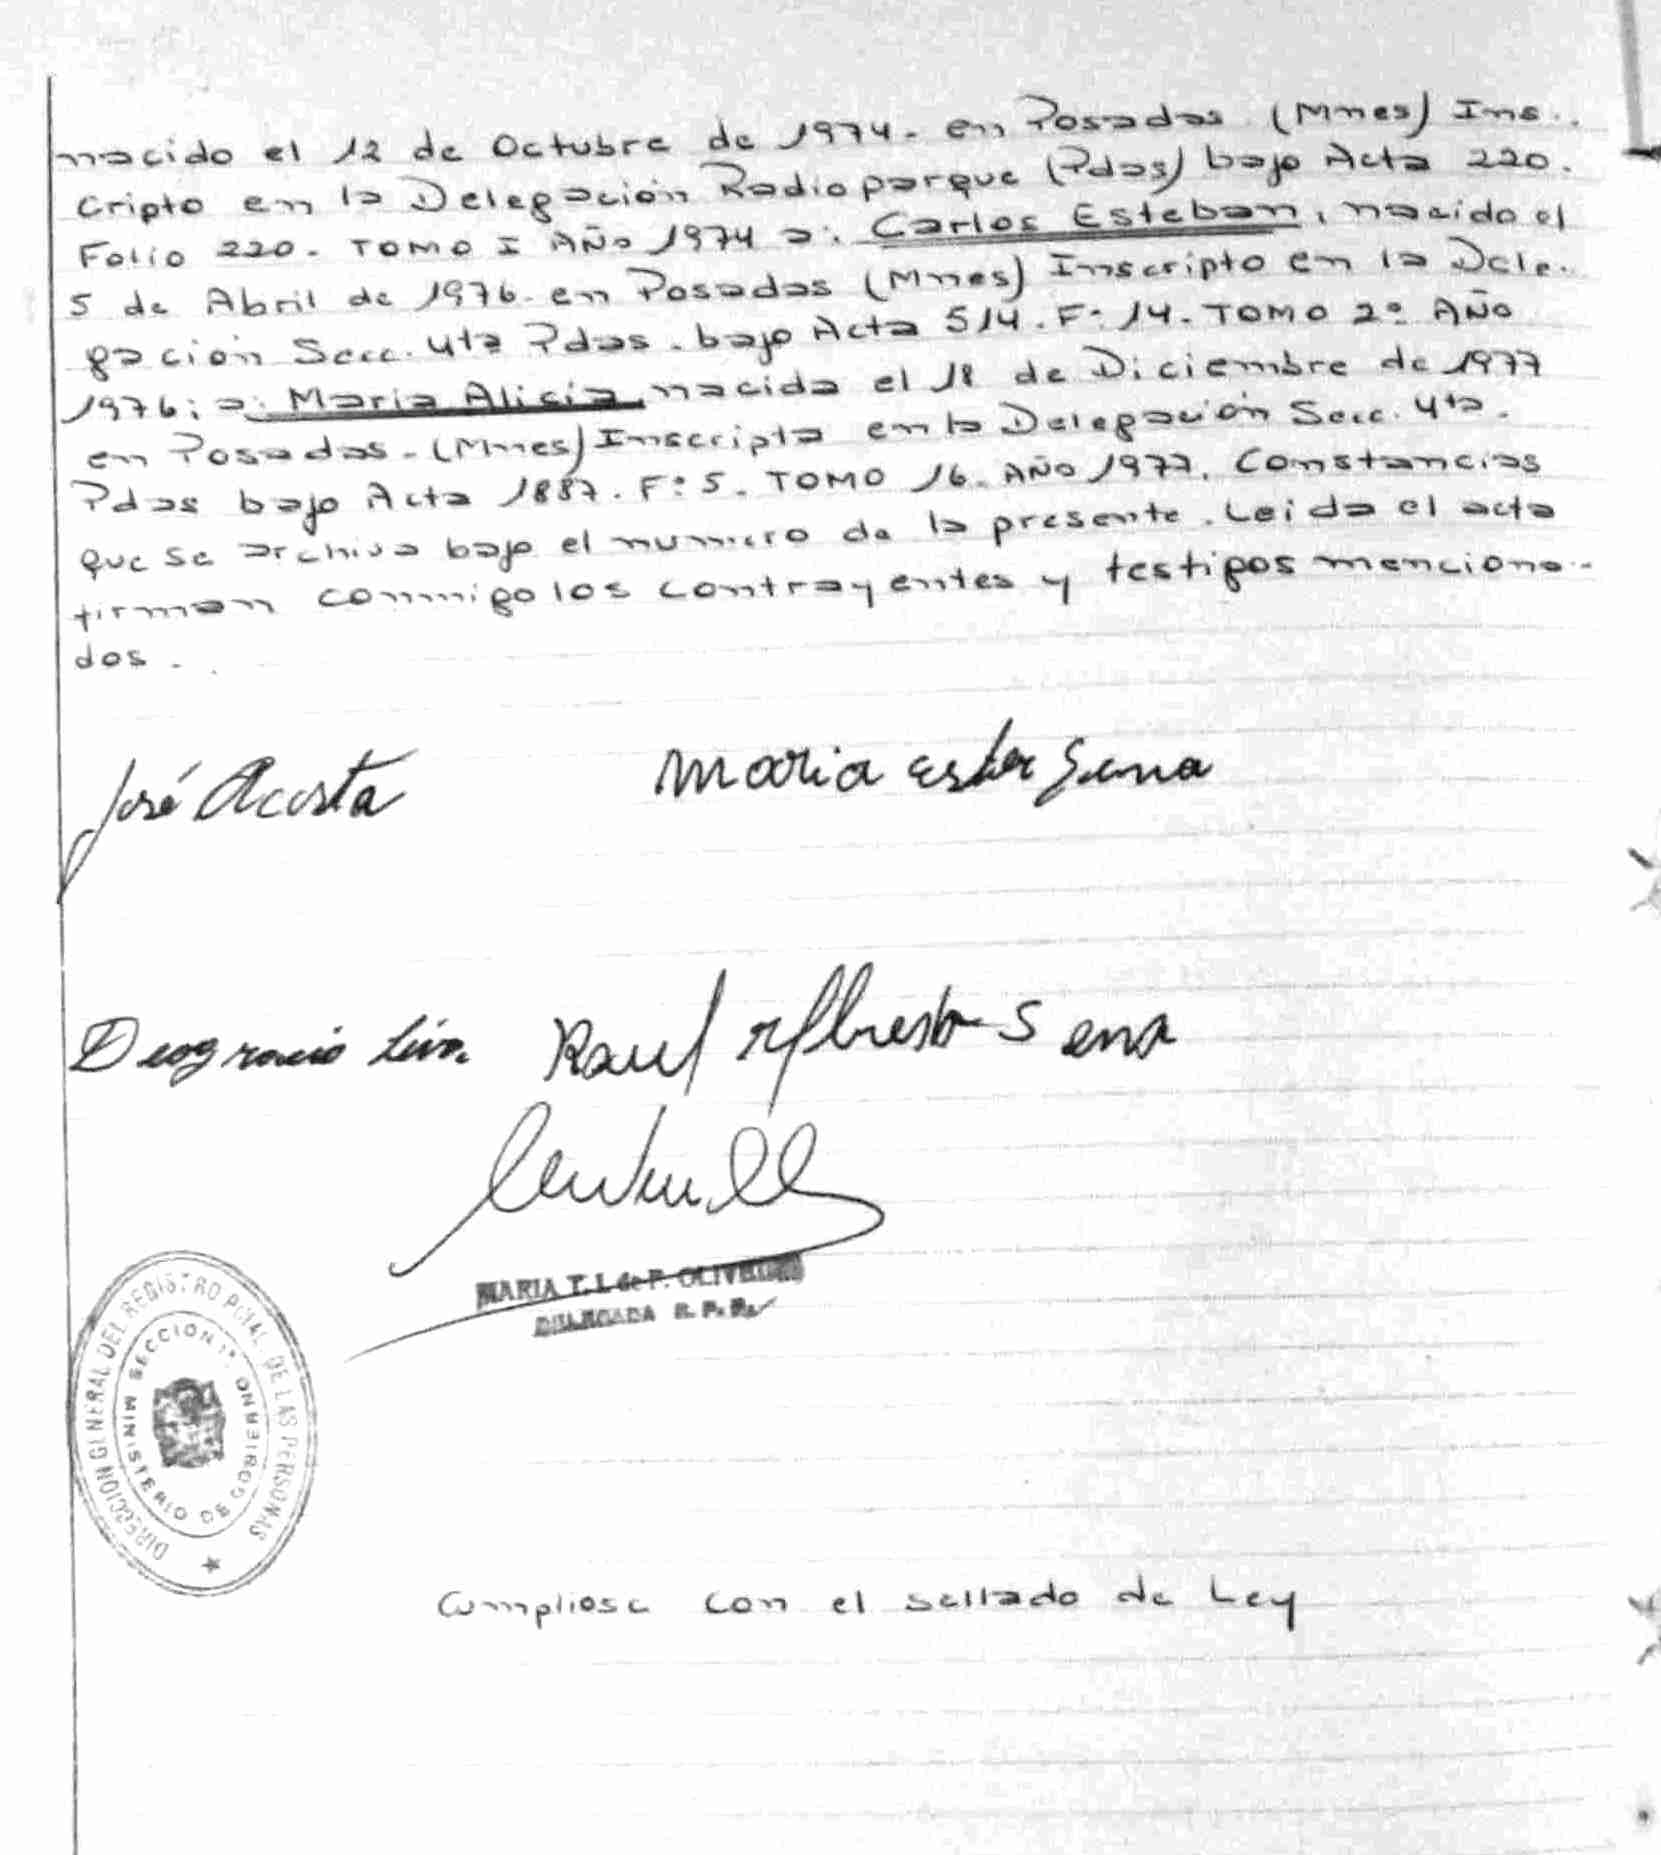 nacido el 12 de Octubre de 1974. en Posadas (Mnes) Ins..
cripto en la Delegación Radioparque (Pdas) bajo Acta 220.
Folio 220. TOMO I AÑo 1974 a: Carlos Esteban, nacido el
5 de Abril de 1976. en Posadas (Mnes) Inscripto en la Dele.
gación Secc. 4ta Pdas. bajo Acta 514. F: 14. TOMO 2º AÑO
1976; a: Maria Alicia, nacida el 18 de Diciembre de 1977
en Posadas. (Mnes) Inscripta en la Delegación Secc. 4ta.
Pdas bajo Acta 1887. F: 5. TOMO 16. AÑO 1977. Constancias
que se archiva bajo el numero de la presente. Leida el acta
firman conmigo los contrayentes y testigos menciona-
dos.
José Acosta
Maria Ester Sena
Deogracio
Raul Sena
MARIA T. I. de P.
DELEGADA R. P. P.
DIRECCION GENERAL DEL REGISTRO PCIAL. DE LAS PERSONAS
SECCION 1ª
MINISTERIO DE GOBIERNO
Cumpliose con el sellado de Ley